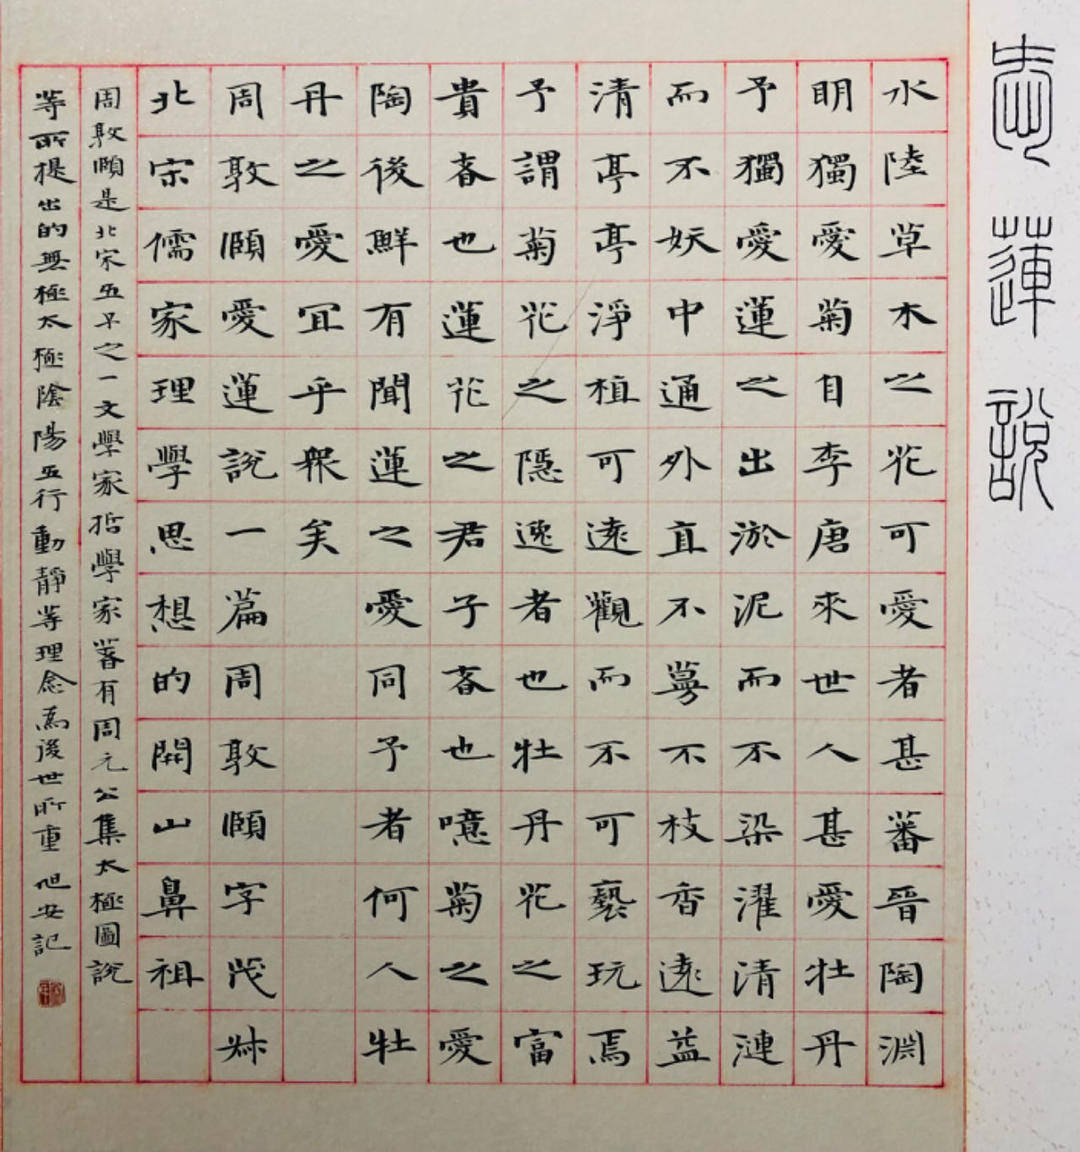 愛蓮說
水陸草木之花可愛者甚蕃晉陶淵
明獨愛菊自李唐來世人甚愛牡丹
予獨愛蓮之出淤泥而不染濯清漣
而不妖中通外直不蔓不枝香遠益
清亭亭淨植可遠觀而不可褻玩焉
予謂菊花之隱逸者也牡丹花之富
貴者也蓮花之君子者也噫菊之愛
陶後鮮有聞蓮之愛同予者何人牡
丹之愛宜乎眾矣
周敦頤愛蓮說一篇周敦頤字茂叔
北宋儒家理學思想的開山鼻祖
周敦頤是北宋五子之一文學家哲學家著有周元公集太極圖說
等所提出的無極太極陰陽五行動靜等理念為後世所重旭安記